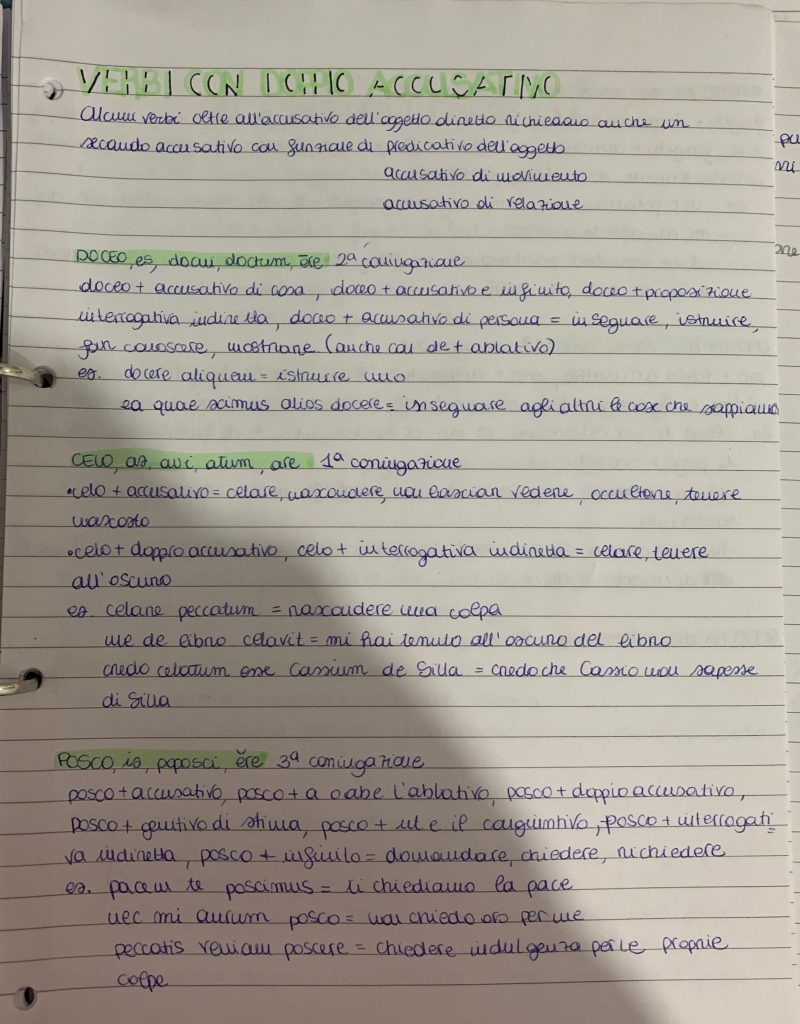 VERBI CON DOPPIO ACCUSATIVO
Alcuni verbi oltre all'accusativo dell'oggetto diretto richiedono anche un
secondo accusativo con funzione di predicativo dell'oggetto
accusativo di movimento
accusativo di relazione
DOCEO, es, docui, doctum, ēre 2ª coniugazione
doceo + accusativo di cosa, doceo + accusativo e infinito, doceo + proposizione
interrogativa indiretta, doceo + accusativo di persona = insegnare, istruire,
far conoscere, mostrare (anche con de + ablativo)
es. docere aliquem = istruire uno
ea quae scimus alios docere = insegnare agli altri le cose che sappiamo
CELO, as, avi, atum, are 1ª coniugazione
•celo + accusativo = celare, nascondere, non lasciar vedere, occultare, tenere
nascosto
•celo + doppio accusativo, celo + interrogativa indiretta = celare, tenere
all'oscuro
es. celare peccatum = nascondere una colpa
me de libro celavit = mi hai tenuto all'oscuro del libro
credo celatum esse Cassium de Silla = credo che Cassio non sapesse
di Silla
POSCO, is, poposci, ĕre 3ª coniugazione
posco + accusativo, posco + a o ab e l'ablativo, posco + doppio accusativo,
posco + genitivo di stima, posco + ut e il congiuntivo, posco + interrogati=
va indiretta, posco + infinito = domandare, chiedere, richiedere
es. pacem te poscimus = ti chiediamo la pace
nec mi aurum posco = non chiedo oro per me
peccatis veniam poscere = chiedere indulgenza per le proprie
colpe